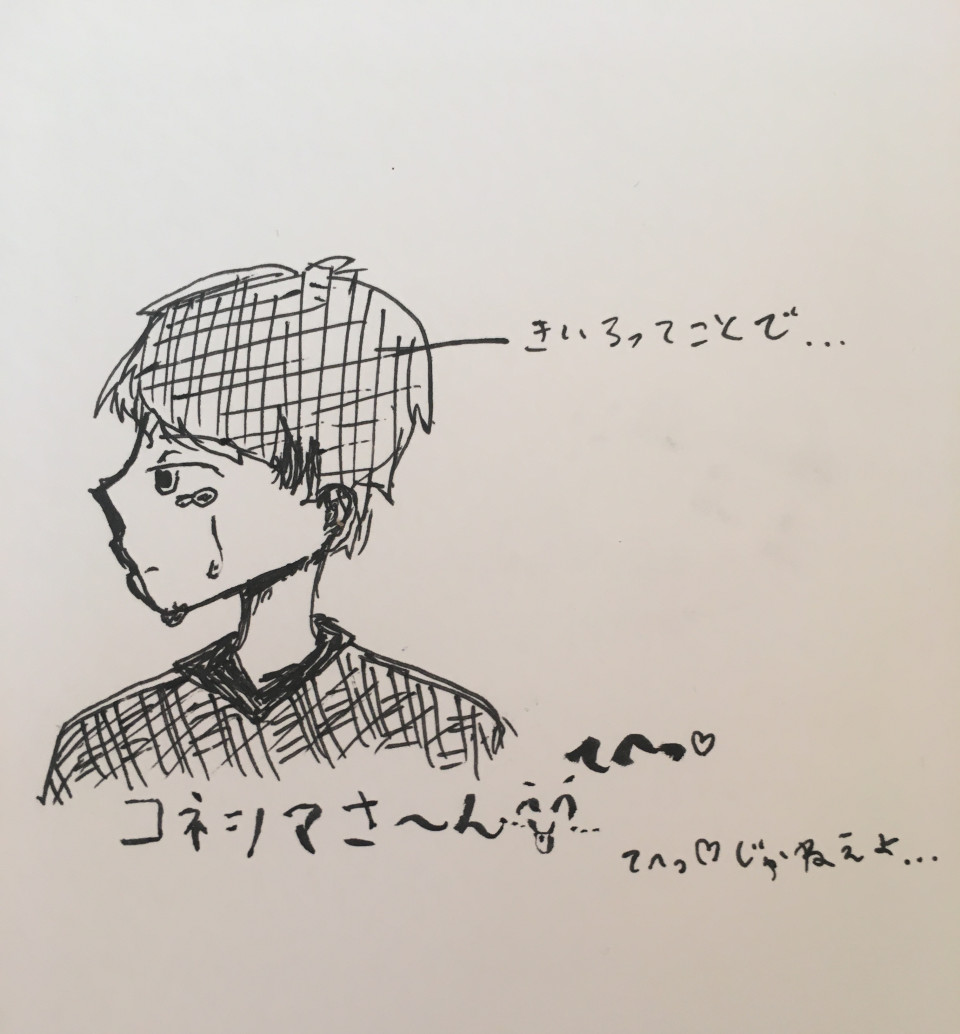 きいろってことで...
てへっ♡
コネシマさ〜ん
てへっ♡じゃねえよ...